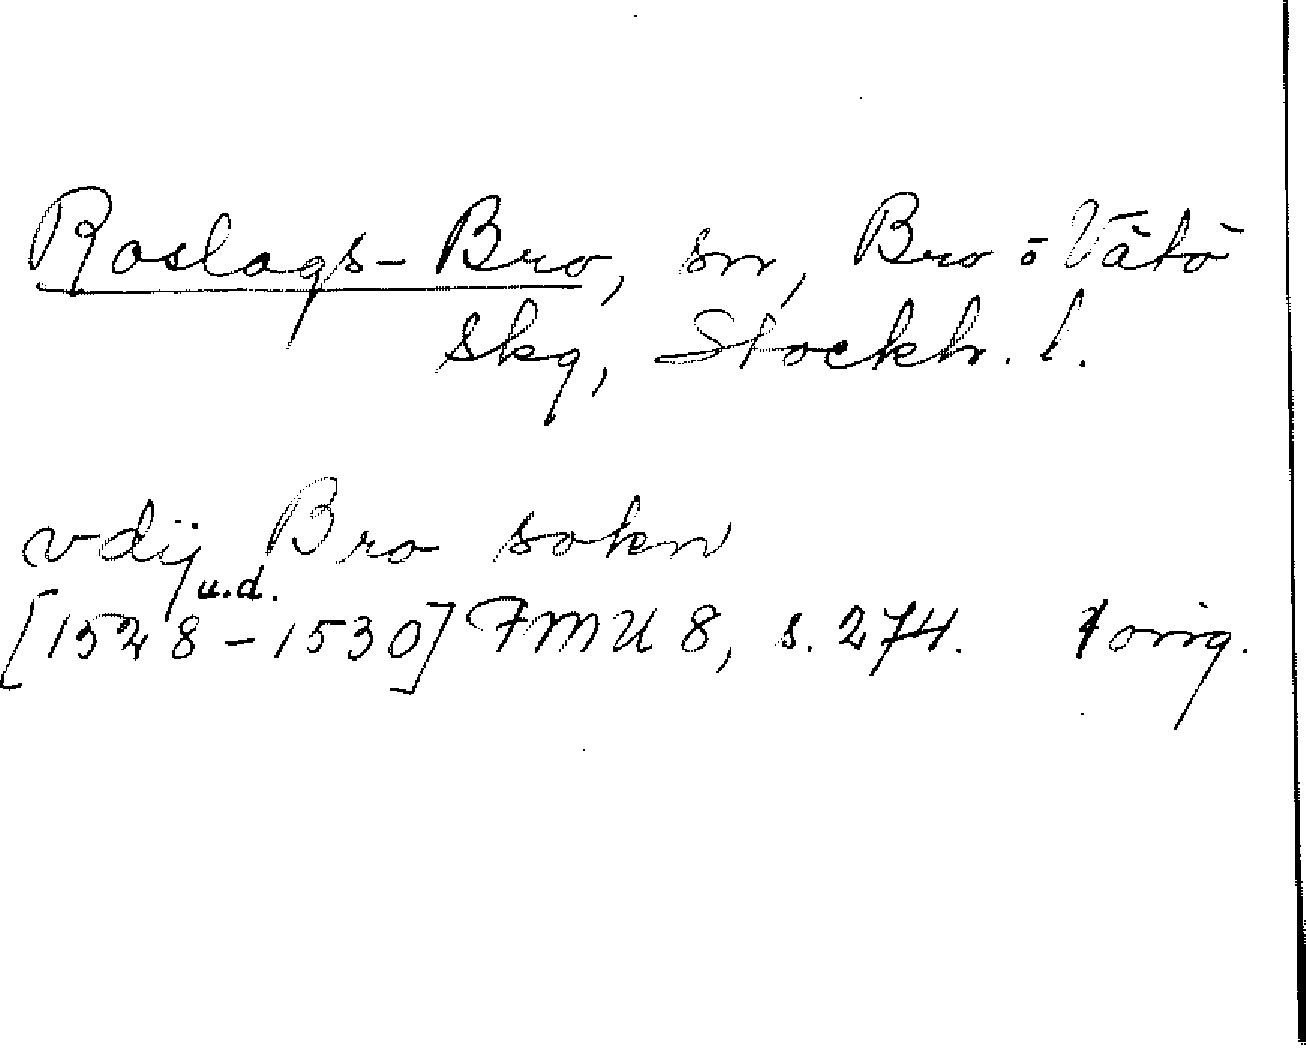 Roslags-Bro, sn, Bro o Vätö
skg, Stockh. l.
vdij Bro sokn
u.d.
[1528-1530] FMU 8, s. 274. orig.